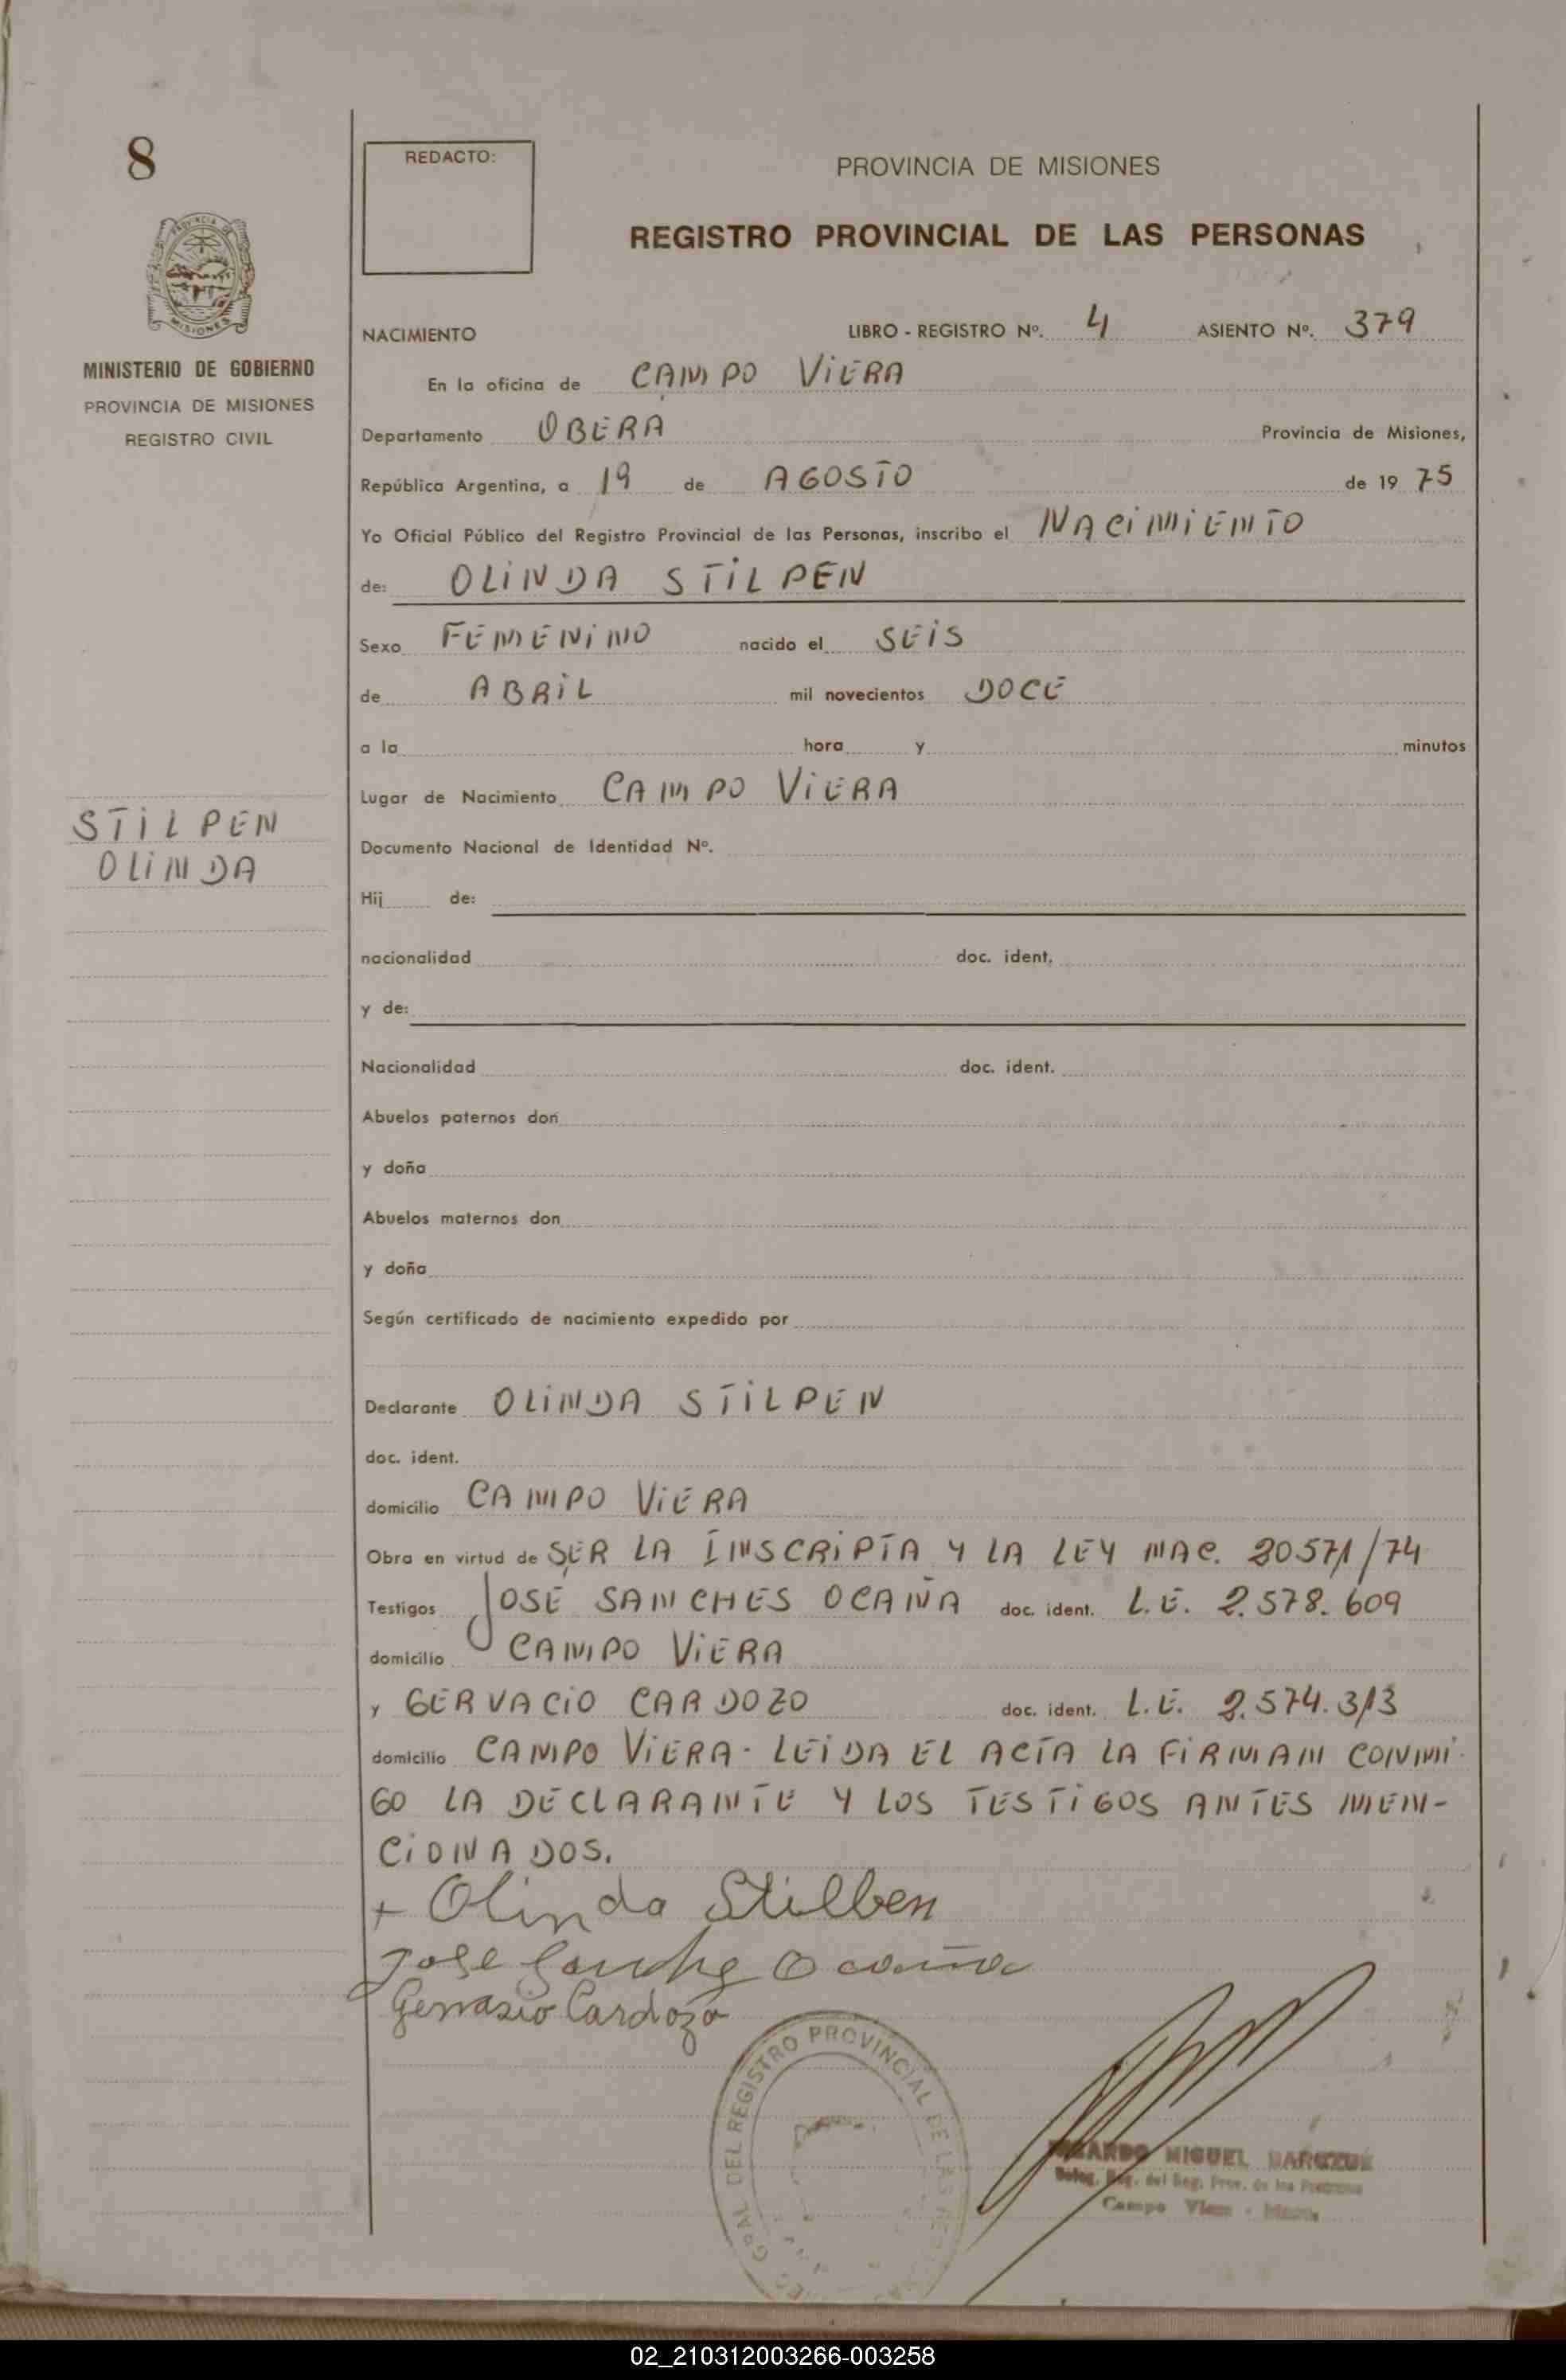 8
REDACTO:
PROVINCIA DE MISIONES
REGISTRO PROVINCIAL DE LAS PERSONAS
PROVINCIA DE
MISIONES
MINISTERIO DE GOBIERNO
PROVINCIA DE MISIONES
REGISTRO CIVIL
NACIMIENTO LIBRO - REGISTRO Nº. 4 ASIENTO Nº. 379
En la oficina de CAMPO ViERA
Departamento OBERA Provincia de Misiones,
República Argentina, a 19 de AGOSTO de 19 75
Yo Oficial Público del Registro Provincial de las Personas, inscribo el NACiMiENTO
de: OLiNDA STiLPEN
Sexo FEMENiNO nacido el SEiS
de ABRiL mil novecientos DOCE
a la hora y minutos
Lugar de Nacimiento CAMPO ViERA
STiLPEN
OLiNDA
Documento Nacional de Identidad Nº.
Hij de:
nacionalidad doc. ident.
y de:
Nacionalidad doc. ident.
Abuelos paternos don
y doña
Abuelos maternos don
y doña
Según certificado de nacimiento expedido por
Declarante OLiNDA STiLPEN
doc. ident.
domicilio CAMPO ViERA
Obra en virtud de SER LA INSCRiPTA Y LA LEY NAC. 20571/74
Testigos JOSE SANCHES OCAÑA doc. ident. L.E. 2.578.609
domicilio CAMPO ViERA
y GERVACiO CARDOZO doc. ident. L.E. 2.574.313
domicilio CAMPO ViERA- LEiDA EL ACTA LA FiRMAN CONMi-
GO LA DECLARANTE Y LOS TESTiGOS ANTES MEN-
CiONADOS.
+ Olinda Stilben
Jose Sanche Ocaña
Gervasio Cardozo
GRAL DEL REGISTRO PROVINCIAL DE LAS
MIGUEL
del Reg. Prov. de las Personas
Campo Viera
02_210312003266-003258